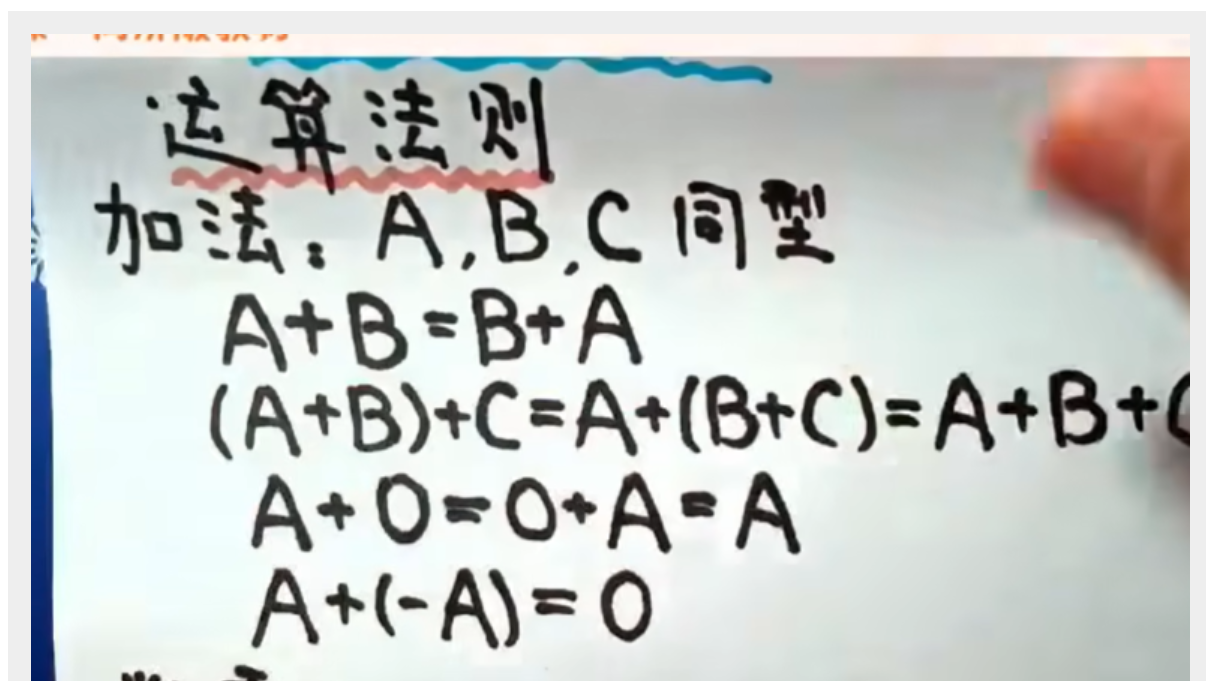 运算法则
加法：A,B,C同型
A+B=B+A
(A+B)+C=A+(B+C)=A+B+
A+O=O+A=A
A+(-A)=O